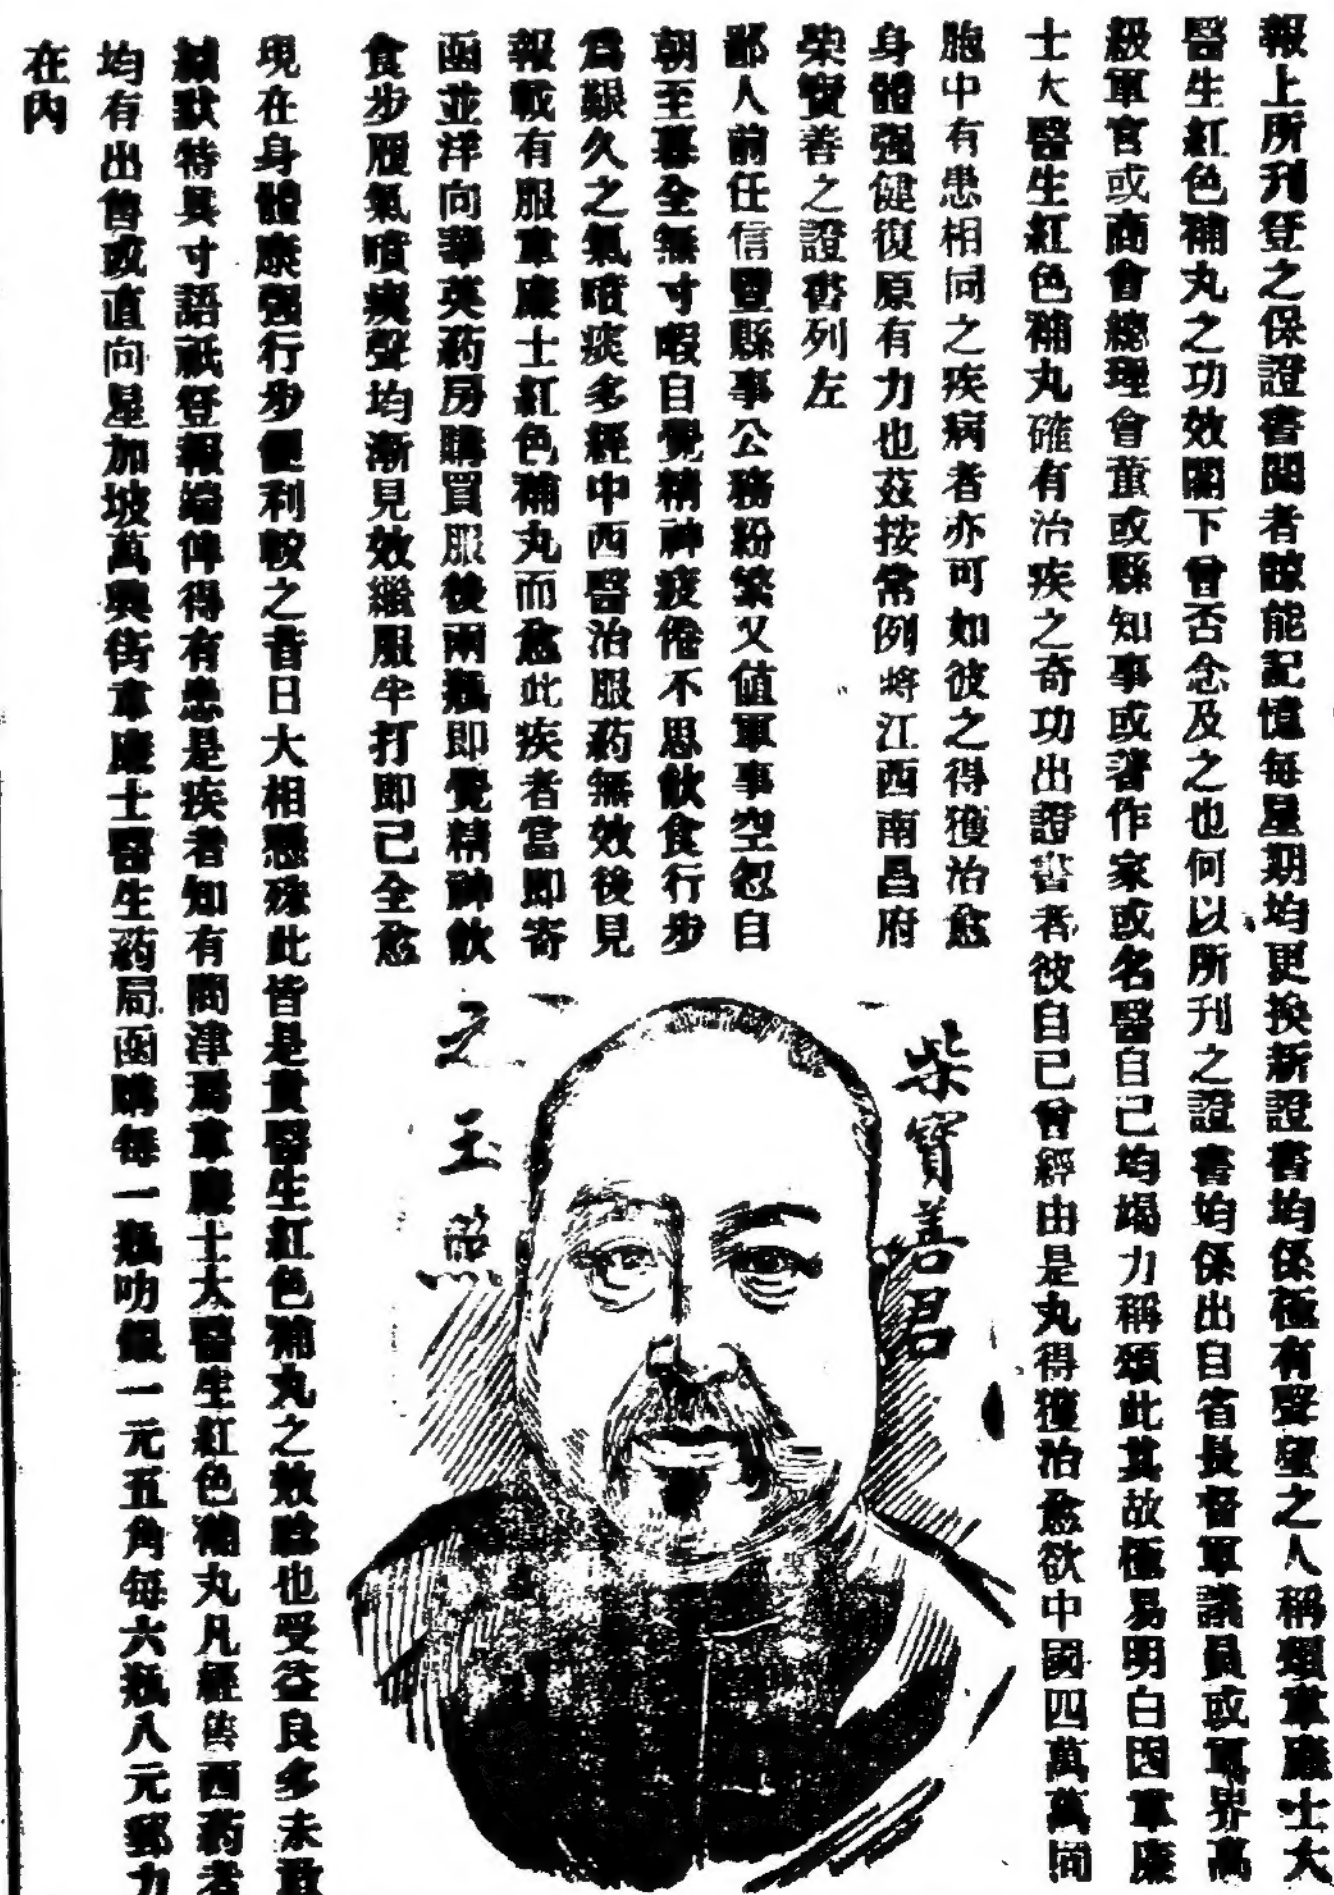 報上所刊登之保證書閱者諒能記憶每星期均更換新證書均係極有聲望之人稱頌韋廉士大
醫生紅色補丸之功效閣下曾否念及之也何以所刊之證書均係出自省長督軍議員或軍界高
級軍官或商會總理會董或縣知事或著作家或名醫自己均竭力稱頌此其故極易明白因韋廉
士大醫生紅色補丸確有治疾之奇功出證書者彼自已曾經由是丸得獲治愈欲中國四萬萬同
胞中有患相同之疾病者亦可如彼之得獲治愈
身體强健復原有力也茲按常例將江西南昌府
柴寶善之證書列左
鄙人前任信豐縣事公務紛繁又値軍事空怱自
朝至暮全無寸暇自覺精神疲倦不思飲食行步
爲艱久之氣噴痰多經中西醫治服药無效後見
報載有服韋廉士紅色補丸而愈此疾者當即寄
函並洋向華英药房購買服後兩瓶即覺精神飲
食步履氣噴痰聲均漸見效繼服半打即已全愈
柴寶善君
之玉照
現在身體康强行步便利較之昔日大相懸殊此皆是貴醫生紅色補丸之效驗也受益良多未敢
緘默特具寸語祇登報端俾得有患是疾者知有問津焉韋廉士大醫生紅色補丸凡經售西药者
均有出售或直向星加坡萬興街韋廉士醫生药局函購每一瓶叻銀一元五角每六瓶八元郵力
在內